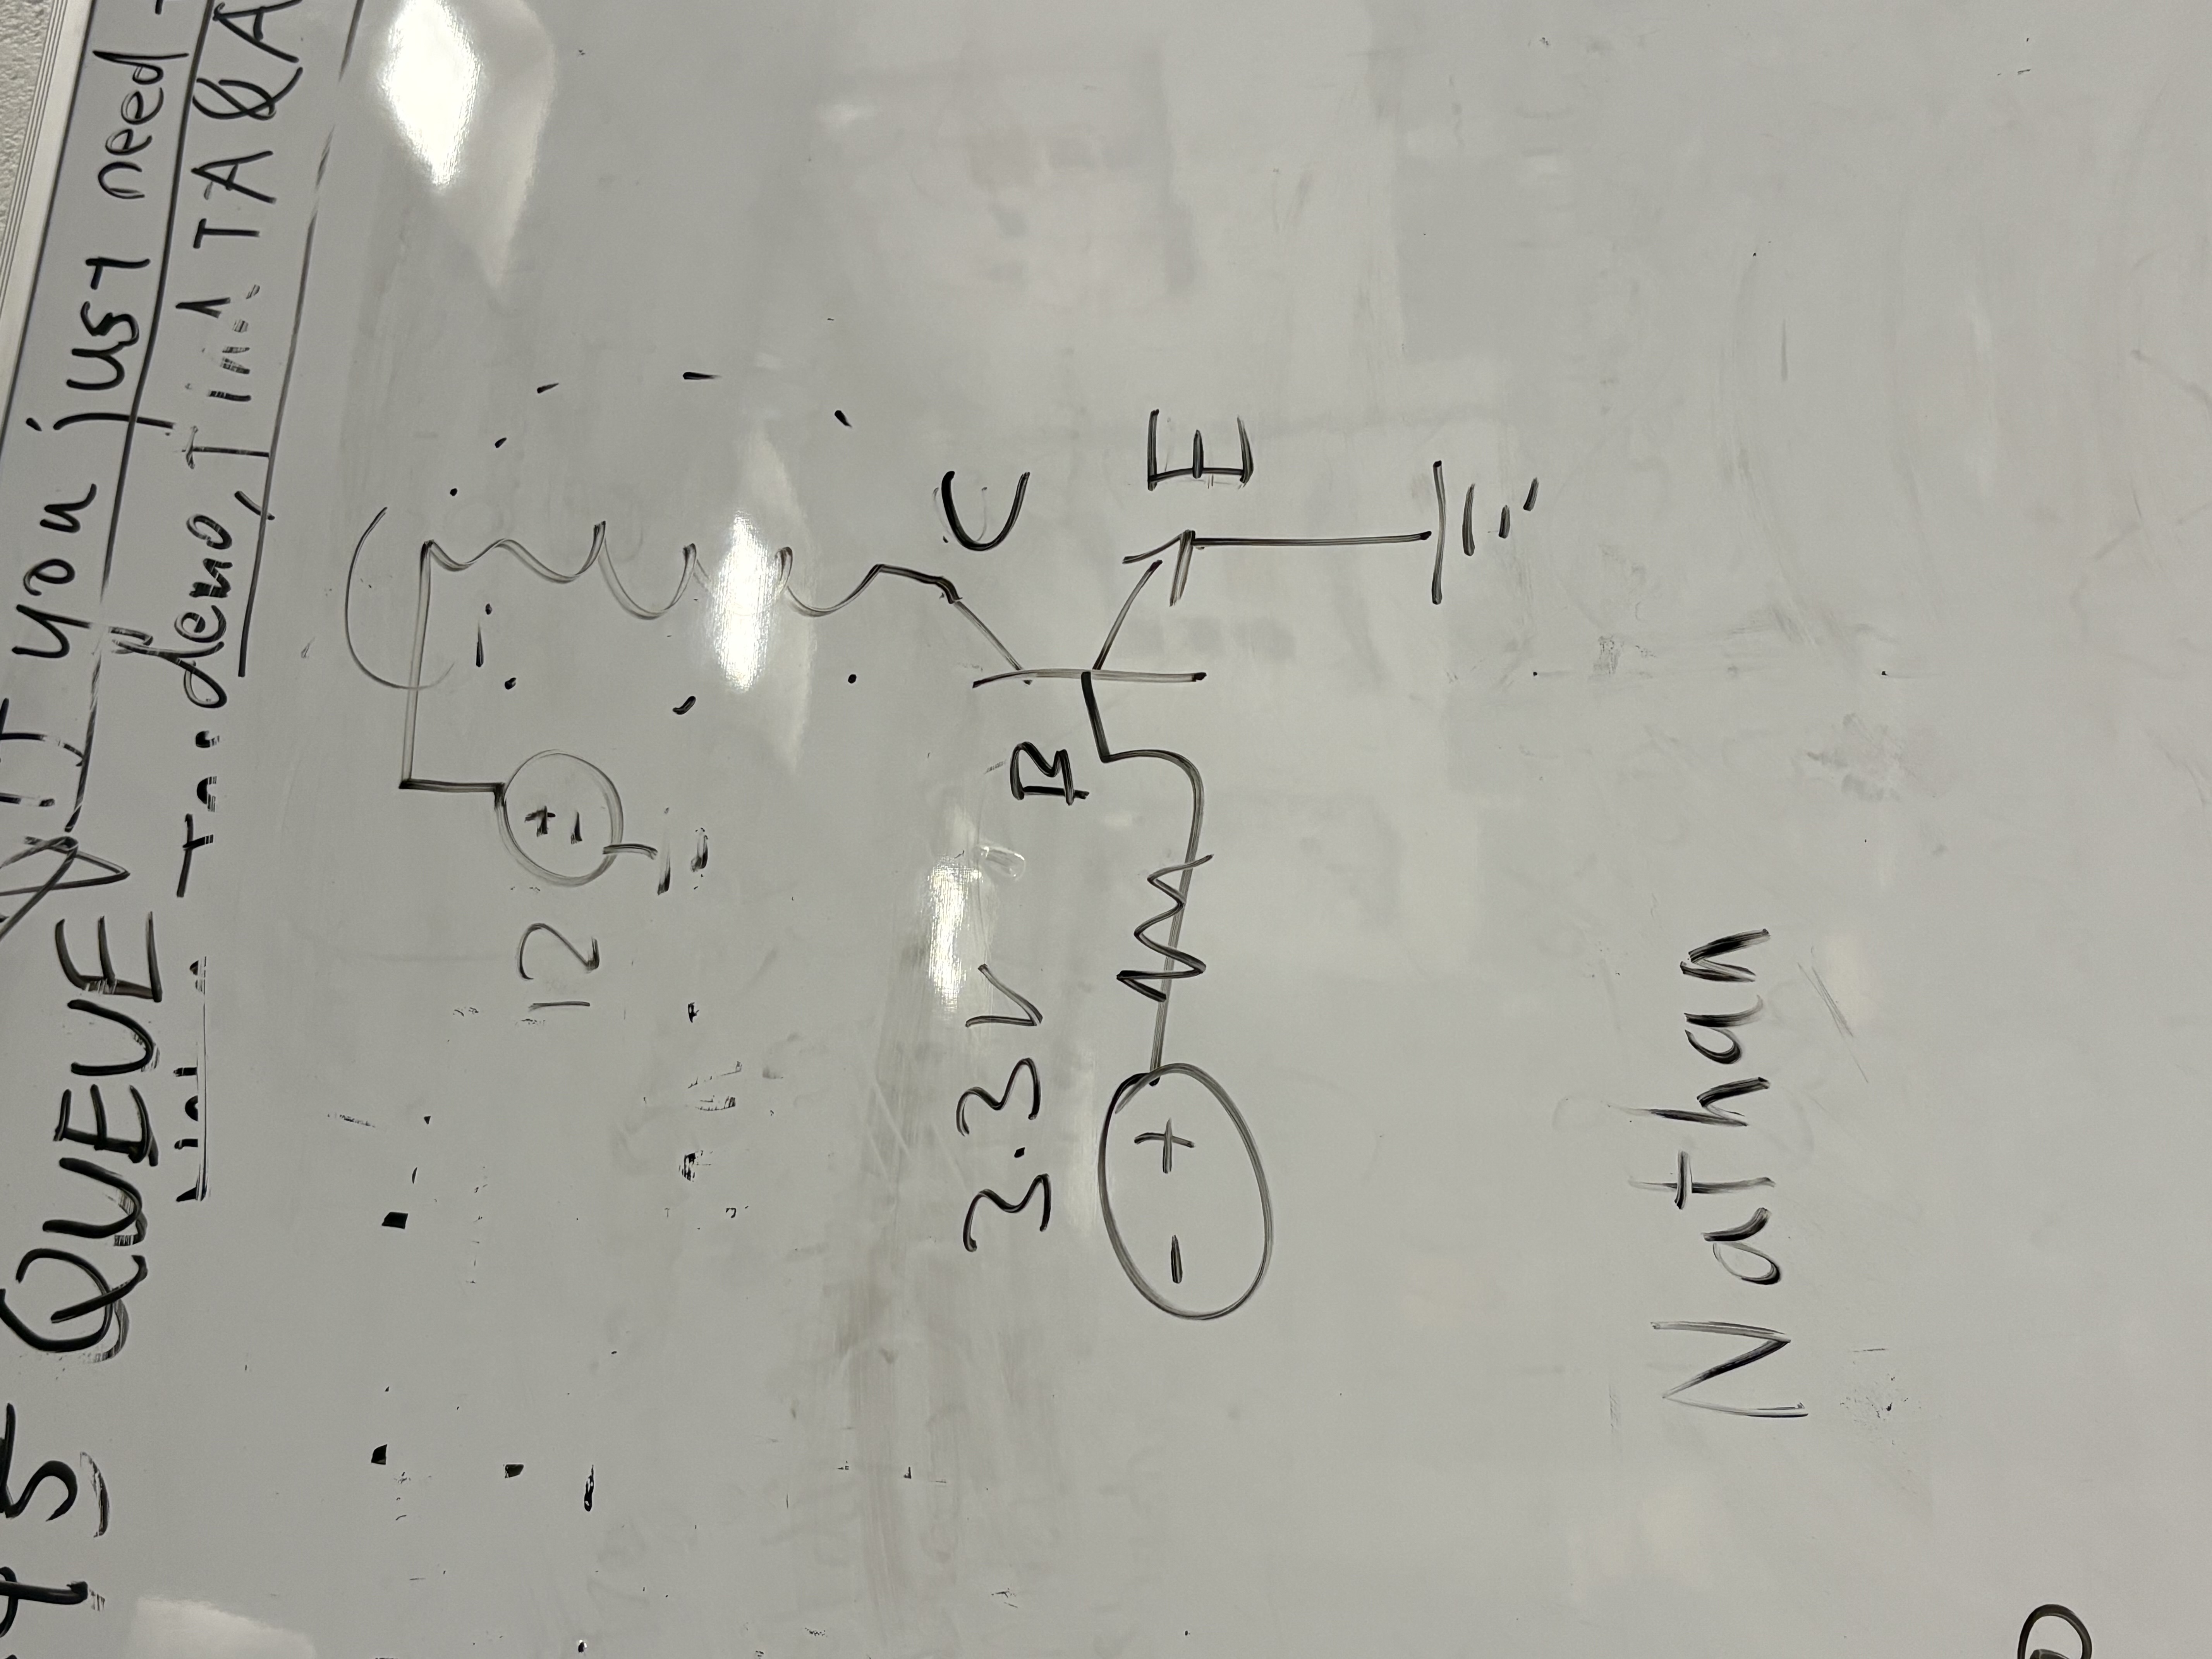 45 QUEUE
If you just need
demo, find TA QA
12
+
-
C
3.3V
B
- +
E
Nathan